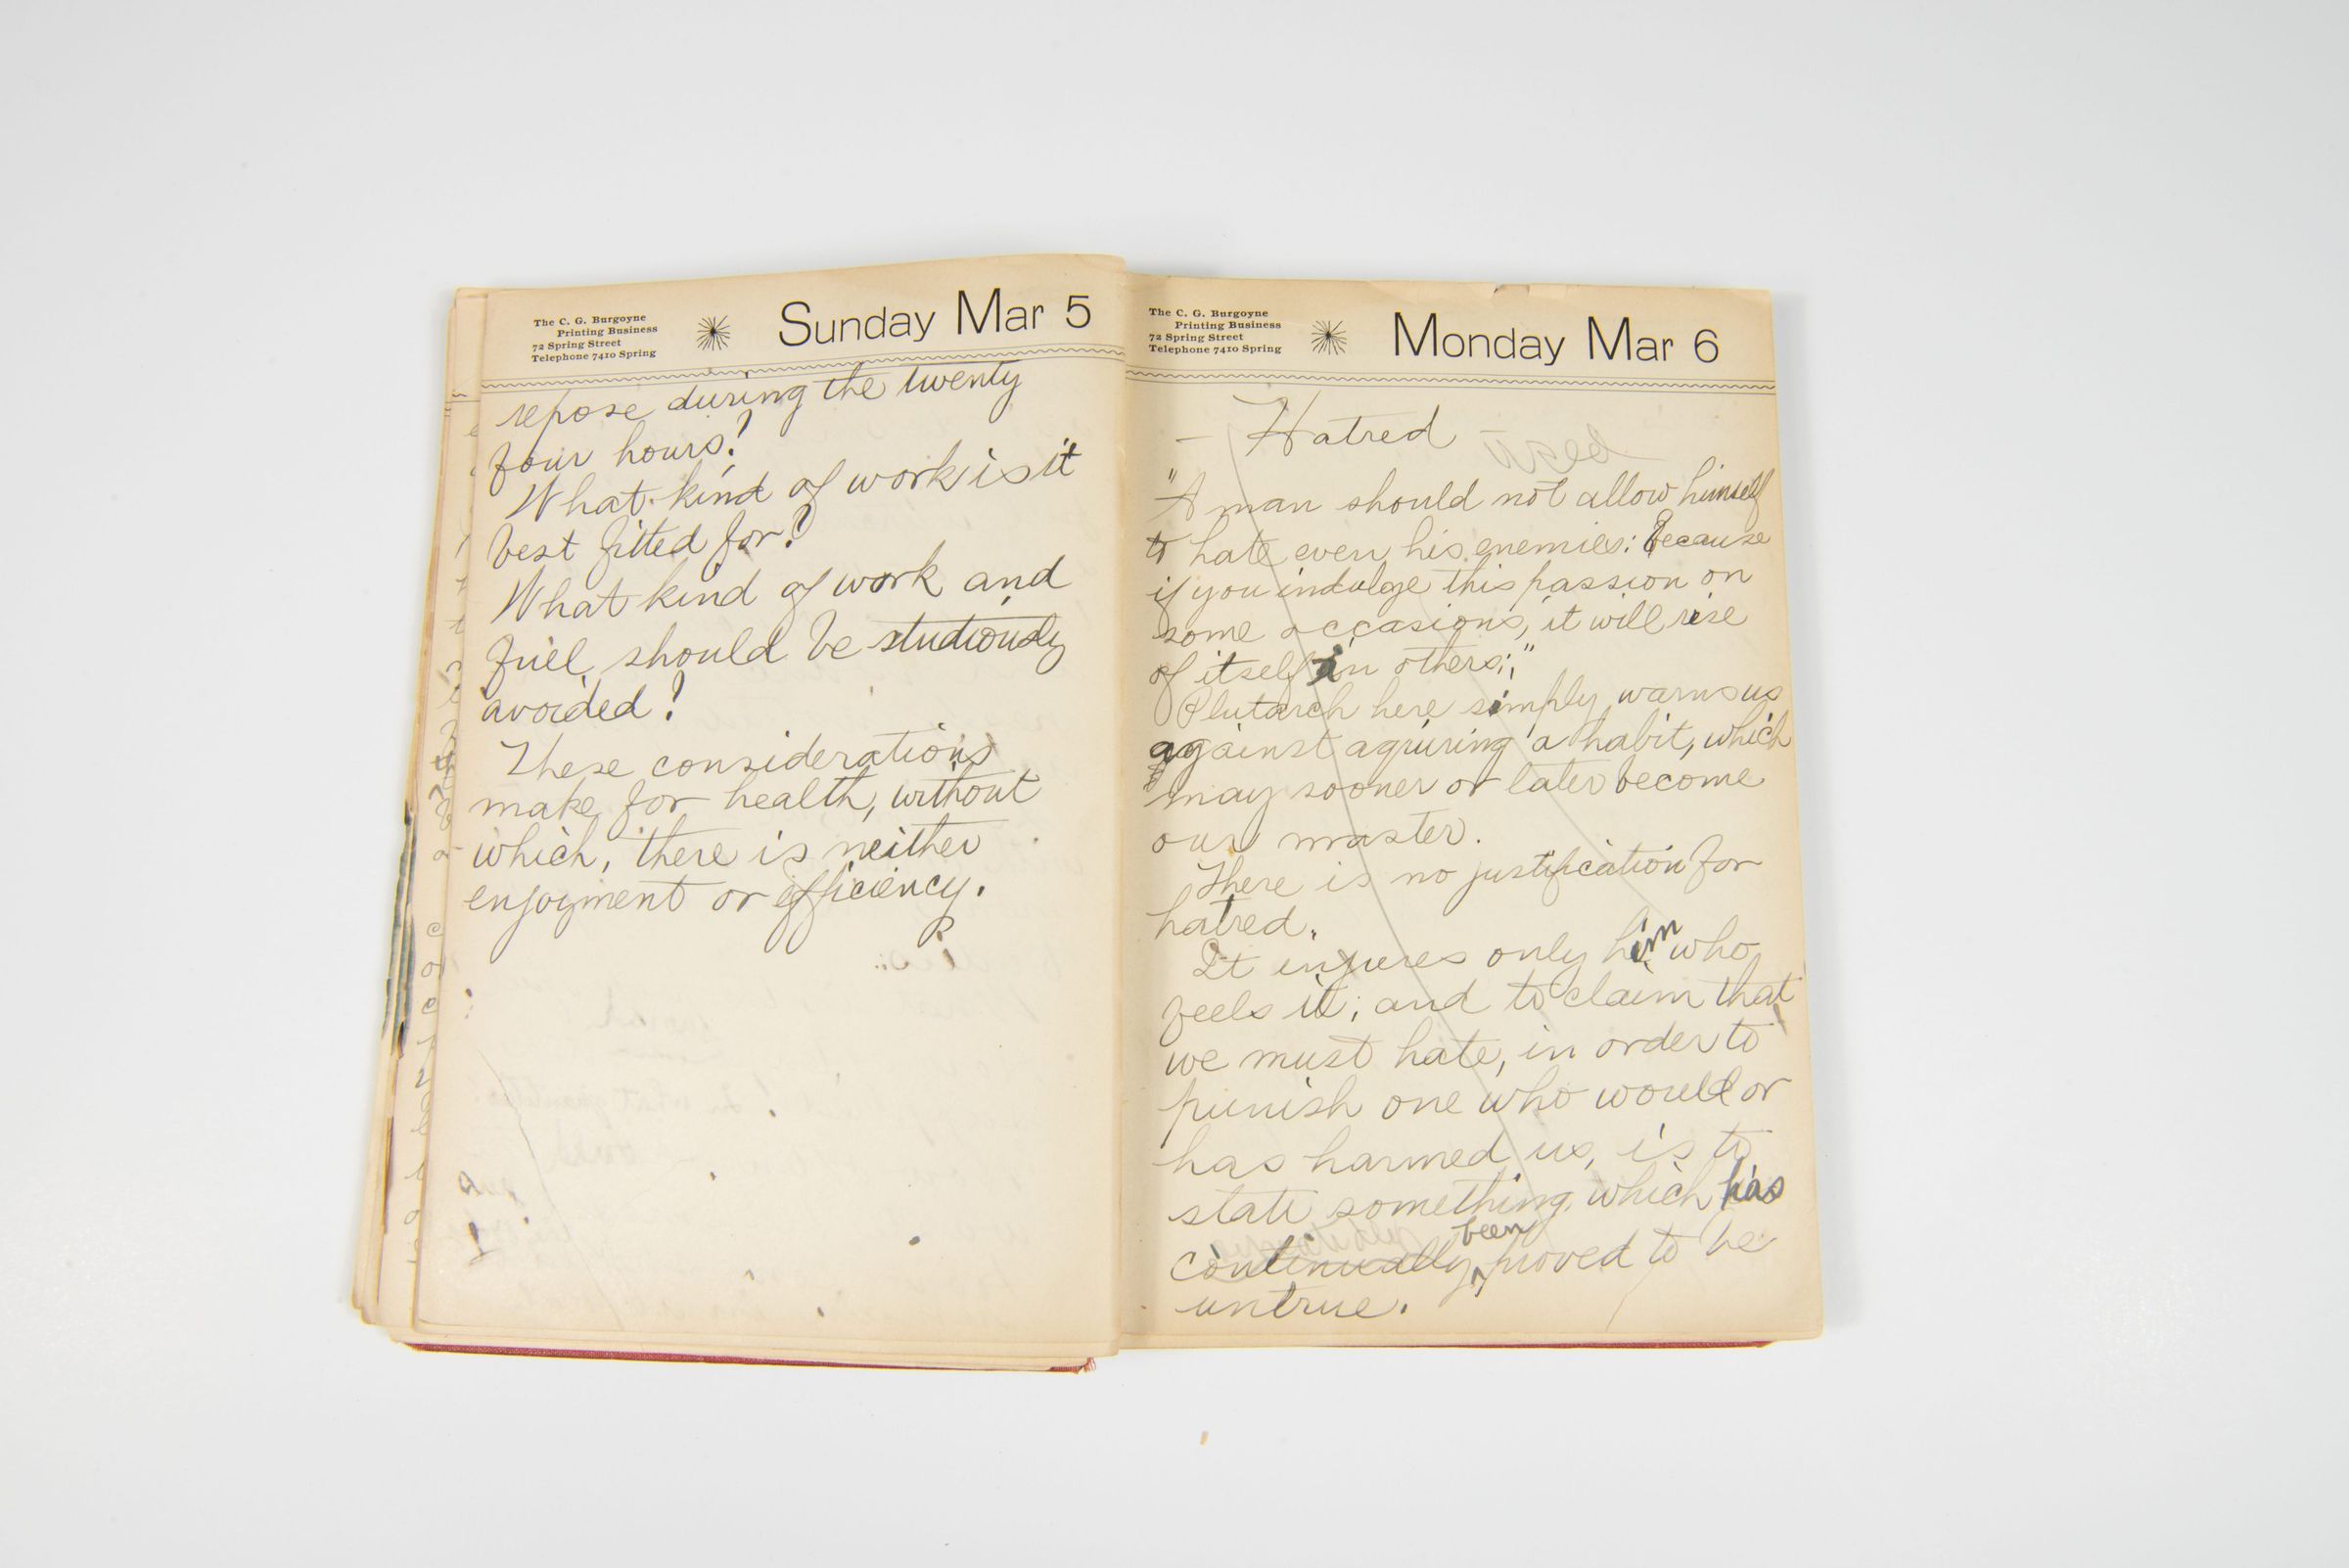 The C. G. Burgoyne
Printing Business
72 Spring Street
Telephone 7410 Spring
Sunday Mar 5
repose during the twenty
four hours?
What kind of work is it
best fitted for?
What kind of work and
fuel should be studiously
avoided?
These considerations
make for health, without
which, there is neither
enjoyment or efficiency.
The C. G. Burgoyne
Printing Business
72 Spring Street
Telephone 7410 Spring
Monday Mar 6
- Hatred -
used
"A man should not allow himself
to hate even his enemies: Because
if you indulge this passion on
some occasions, it will rise
of itself in others;"
Plutarch here simply warns us
against aqiuring a habit, which
may sooner or later become
our master.
There is no justification for
hatred.
It injures only him who
feels it; and to claim that
we must hate, in order to
punish one who would or
has harmed us, is to
state something which has
continually been proved to be
untrue.